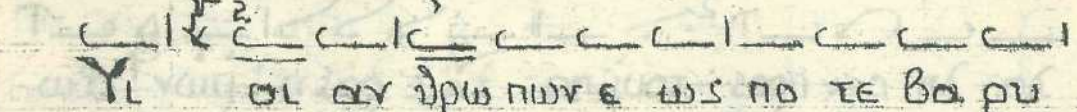 Υι οι αν θρω πων ε ως πο τε βα ρυ